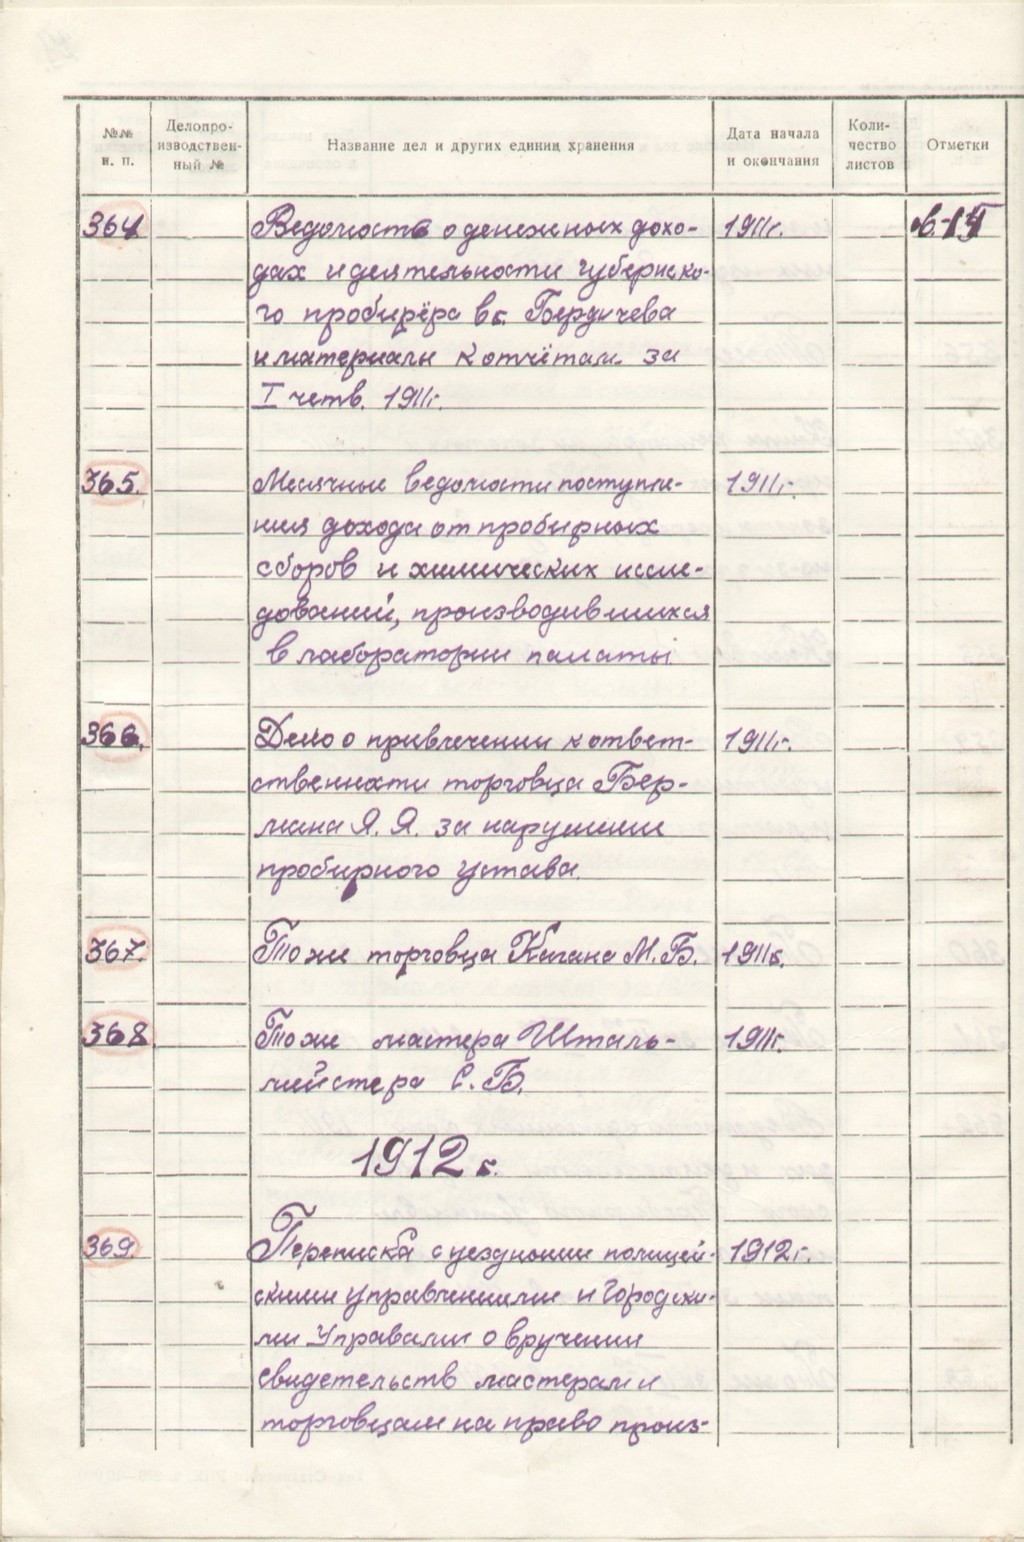 №№ п. п. Делопроизводственный № Название дел и других единиц хранения Дата начала и окончания Количество листов Отметки
364 Ведомость о денежных дохо- 1911г.
дах и деятельности губернско-
го пробирёра в г. Бердичева
и материалы к отчётам за
I четв. 1911г.
365. Месячные ведомости поступле- 1911г.
ния дохода от пробирных
сборов и химических иссле-
дований, производившихся
в лаборатории палаты
366. Дело о привлечении к ответ- 1911г.
ственности торговца Бер-
мана Я. Я. за нарушение
пробирного устава.
367. То же торговца Кагана М.Б. 1911г.
368. То же мастера Шталь- 1911г.
мейстера С.Б.
1912 г.
369. Переписка с уездными полицей- 1912 г.
скими управлениями и Городски-
ми Управами о вручении
свидетельств мастерам и
торговцам на право произ-